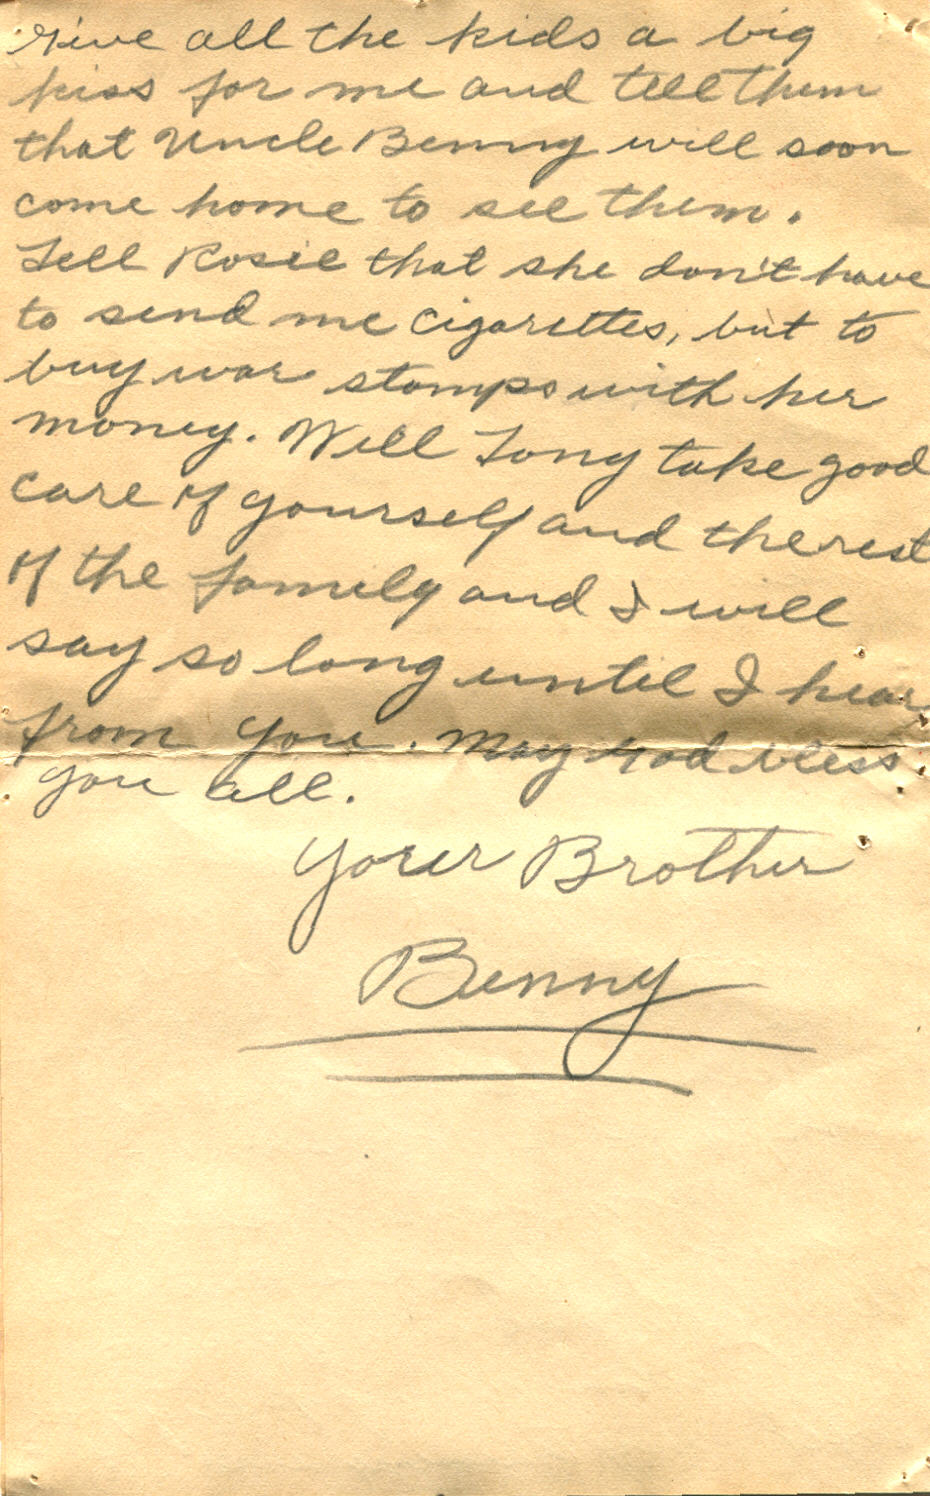 Give all the kids a big
kiss for me and tell them
that Uncle Benny will soon
come home to see them.
Tell Rosie that she don't have
to send me cigarettes, but to
buy war stamps with her
money. Well Tony take good
care of yourself and the rest
of the family and I will
say so long until I hear
from you. May God bless
you all.
Your Brother
Benny